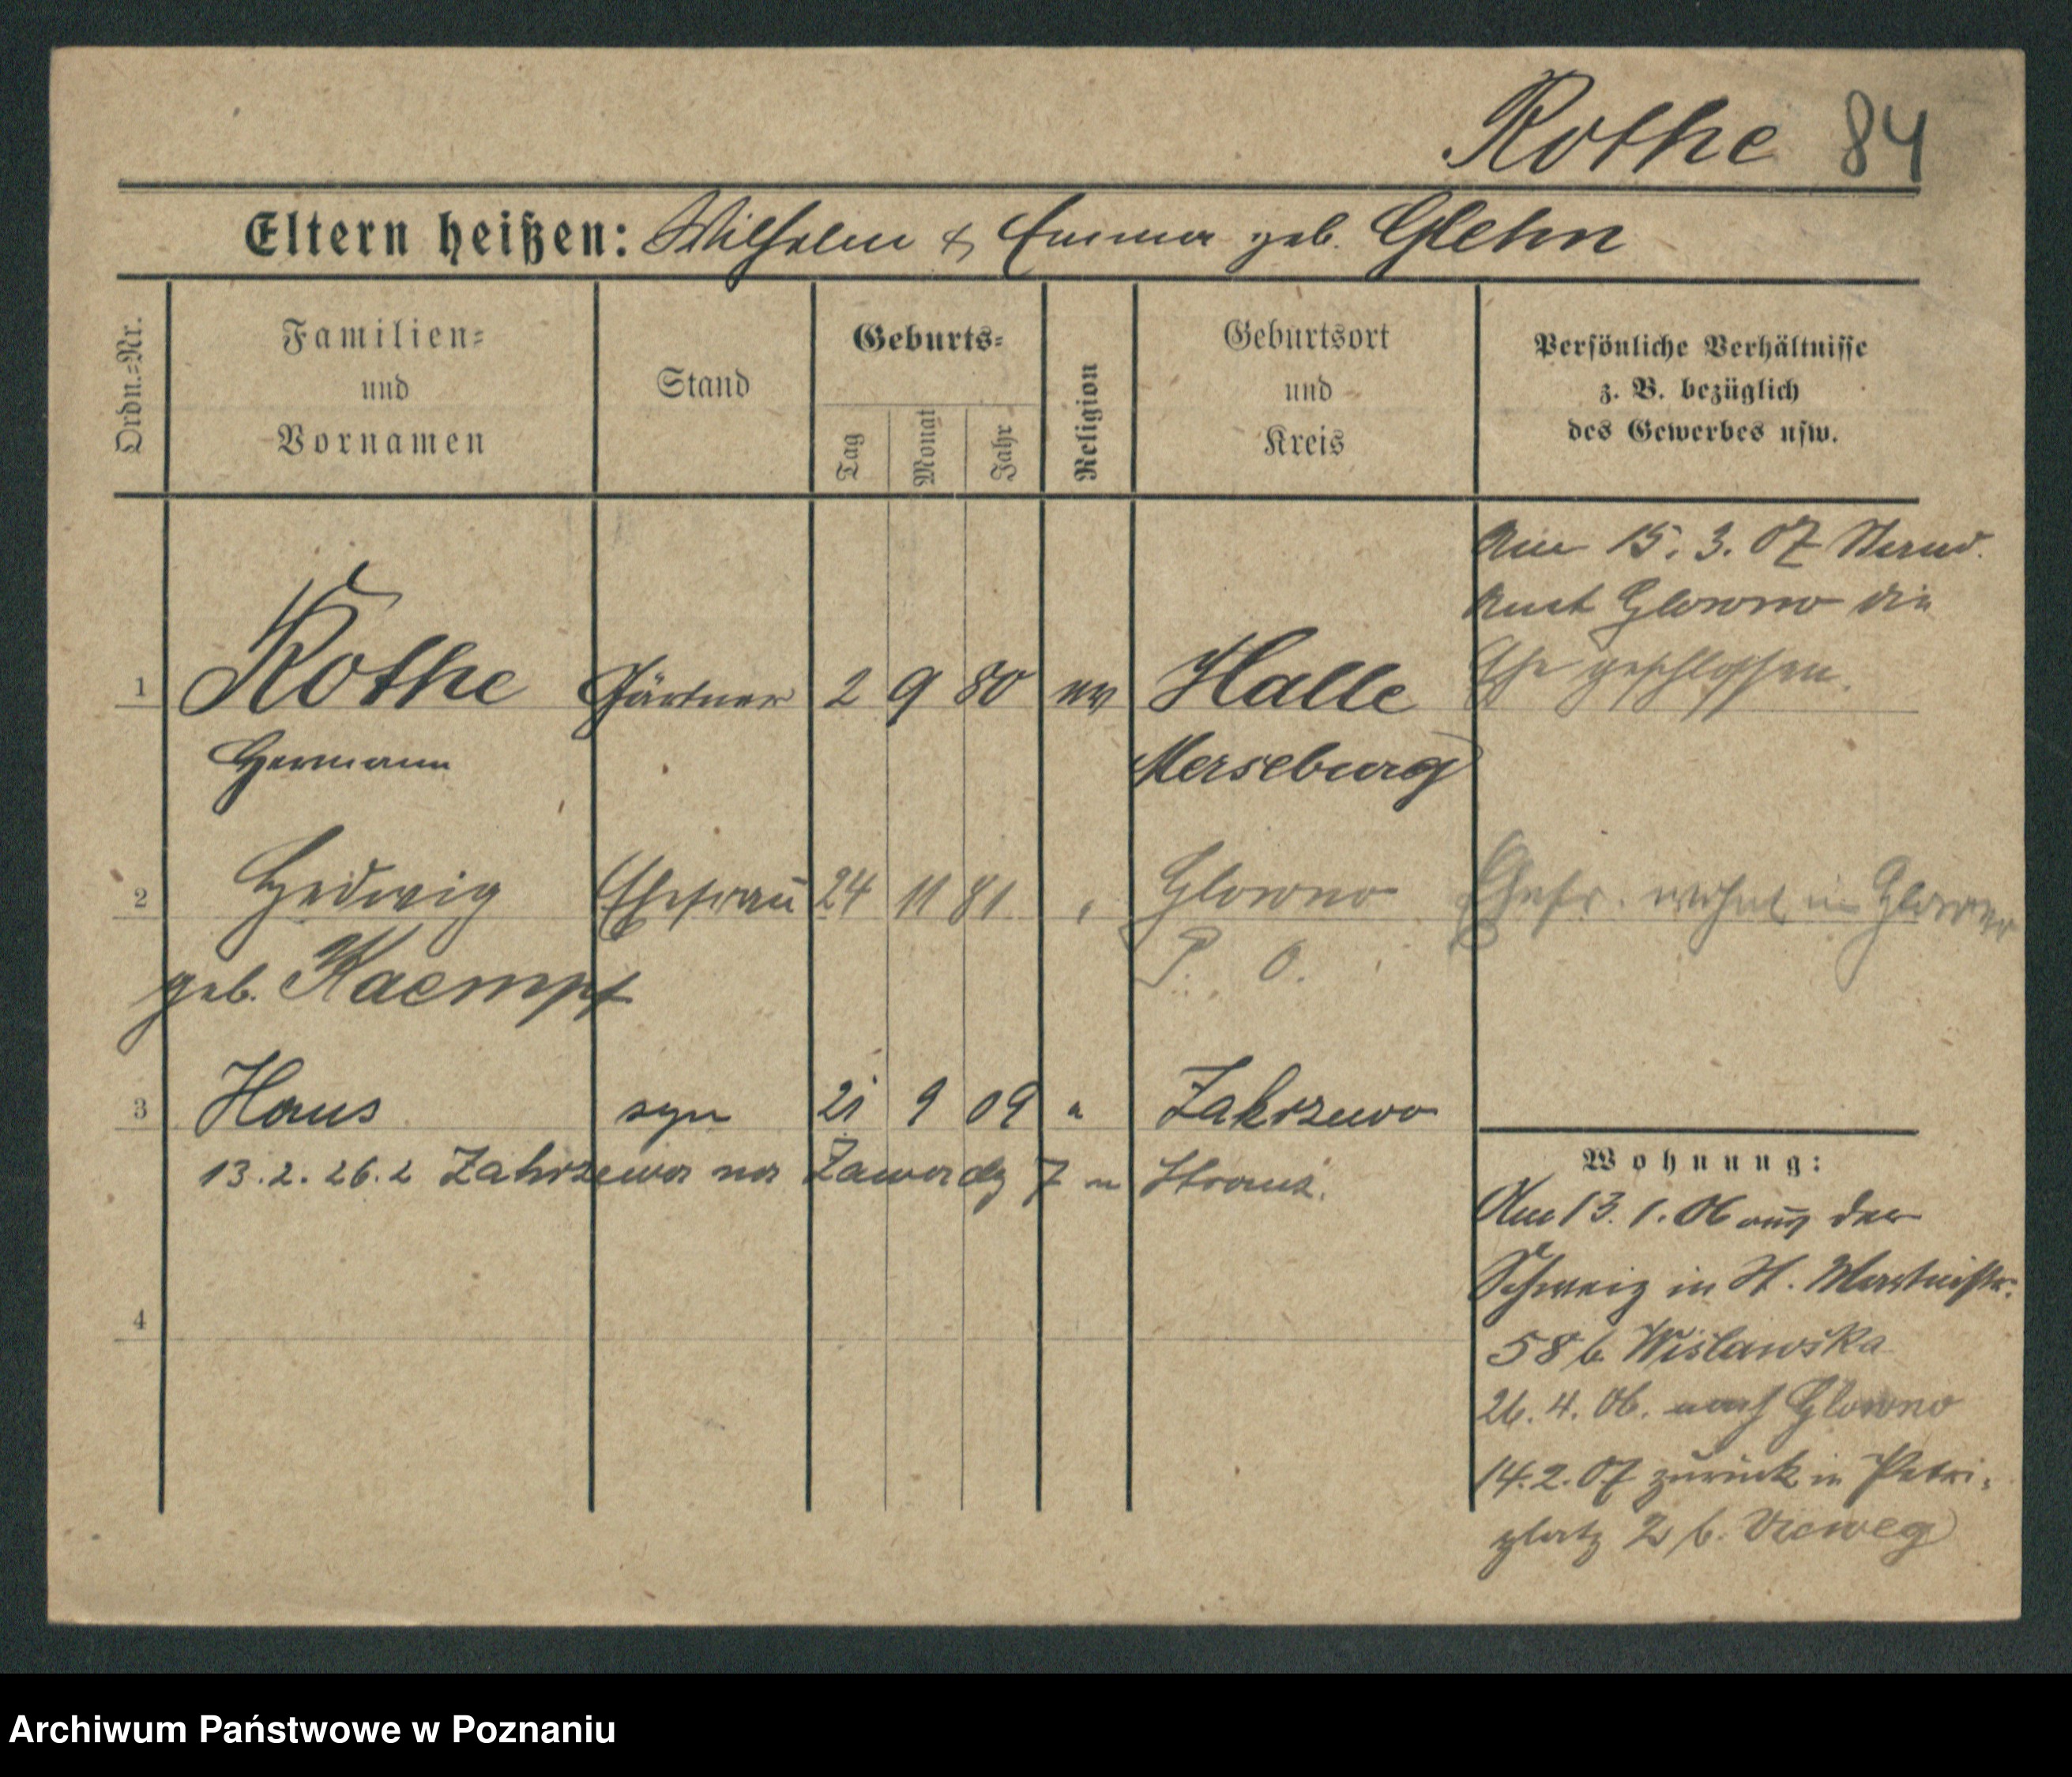 Rothe 84
Eltern heißen: Wilhelm & Emma geb. Glehn
Ordn.=Nr.
Familien=
und
Vornamen
Stand
Geburts=
Tag
Monat
Jahr
Religion
Geburtsort
und
Kreis
Persönliche Verhältnisse
z. B. bezüglich
des Gewerbes usw.
Am 15. 3. 07 Stand.
Amt Glowno die
Ehe geschlossen.
1 Rothe Gärtner 2 9 80 ev Halle
Hermann Merseburg
2 Hedwig Ehefrau 24 11 81 " Glowno Ehefr. wohnt in Glowno
geb. Kaempf P. O.
3 Hans syn 21 9 09 " Zakrzewo
13.2. 26.2 Zakrzewa na Zawady 7 u
4
Wohnung:
Am 13. 1. 06 aus der
Schweiz in St. Martinstr.
58 b. Wisławska
26. 4. 06. nach Glowno
14.2.07 zurück in Petri=
platz 2 b. Vieweg
Archiwum Państwowe w Poznaniu